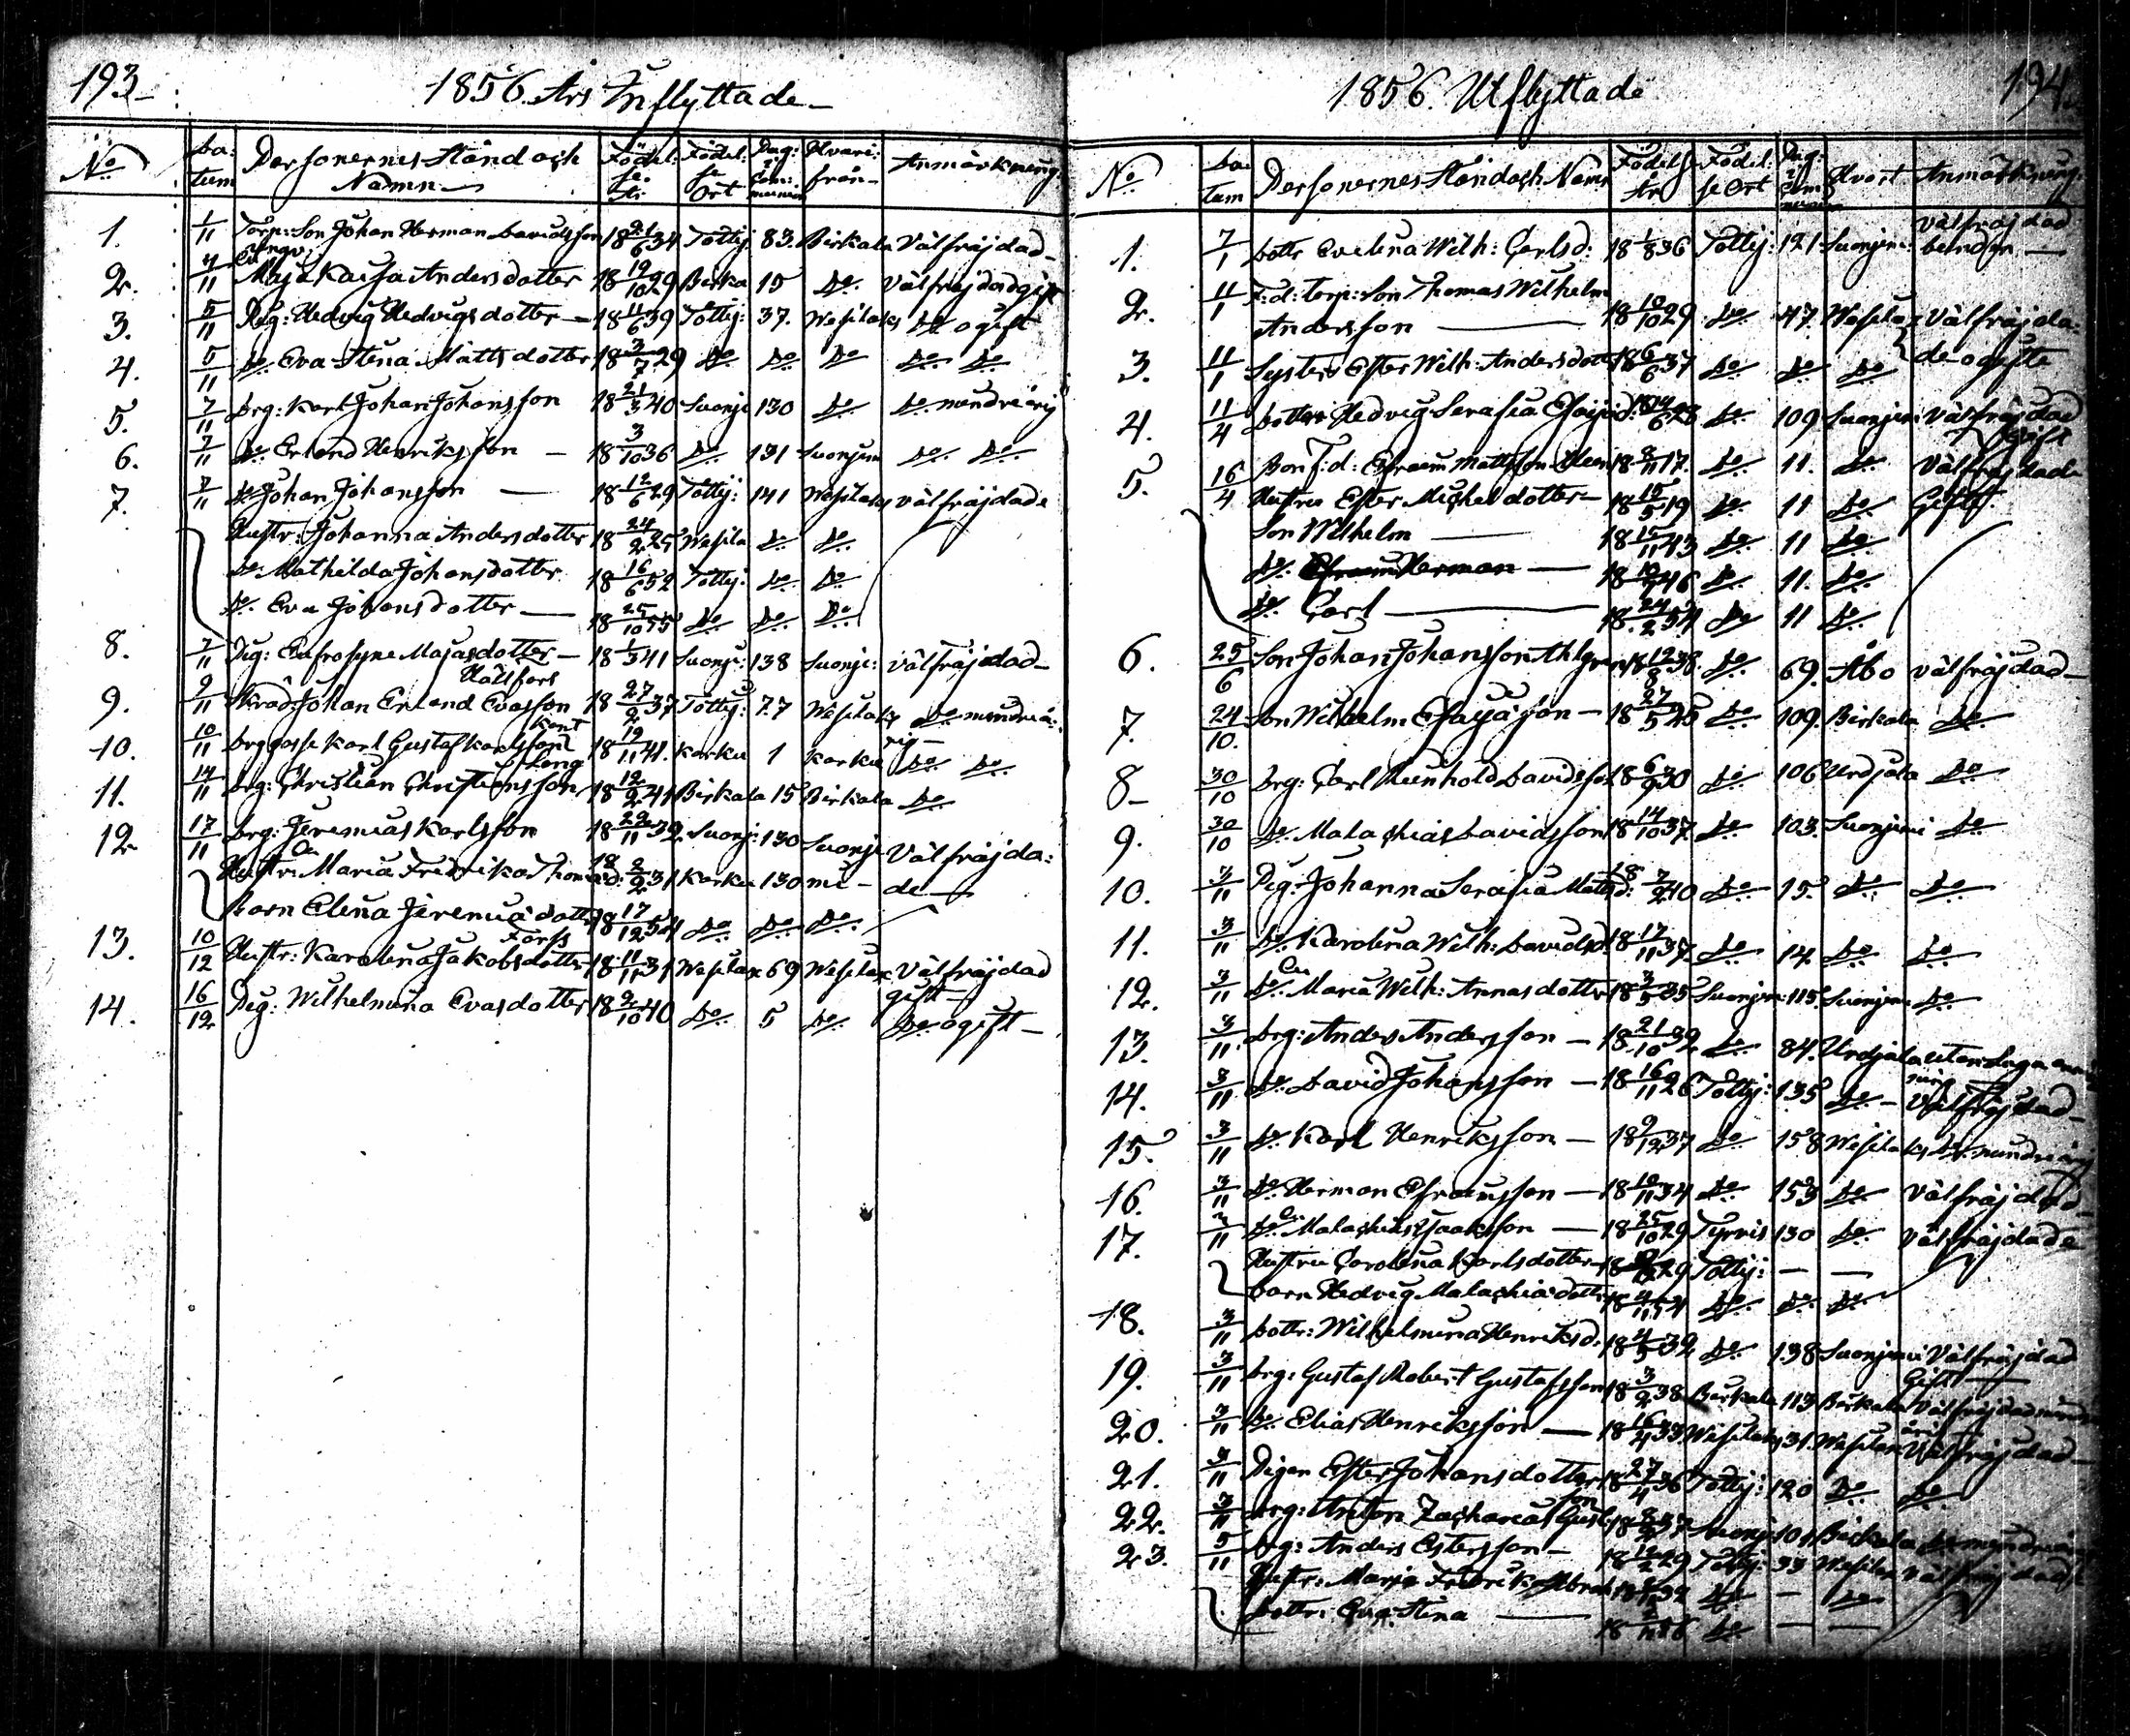 193
1856. Års Inflyttade
No Da:tum Personernes Stånd och Namn Födel:se År Födel:se Ort Pag: i Communion Hvari:från Anmärkning
1. 1/11 Torp: Son Johan Herman Davidsson 18 21/6 34 Tottij: 83. Birkala Välfräjdad
2. 4/11 Maja Kaisa Andersdotter 18 19/10 29 Birka 15 Do välfräjdad gift
3. 5/11 Pig: Hedvig Hedvigsdotter 18 11/6 39 Tottij: 37. Wesilaks Do ogift
4. 5/11 Do Eva Stina Mattsdotter 18 3/7 29 Do Do Do Do Do
5. 7/11 Drg: Karl Johan Johansson 18 21/3 40 Suonje 130 Do Do mindreårig
6. 7/11 Do Erland Henriksson 18 3/10 36 Do 131 Suonjem Do Do
7. 7/11 Do Johan Johansson 18 12/6 29 Tottij: 141 Wesilaks välfräjdade
Hustr: Johanna Andersdotter 18 24/2 25 Wesila Do Do
Do Mathilda Johansdotter 18 16/6 52 Tottij: Do Do
Do Eva Johansdotter 18 25/10 55 Do Do Do
8. 7/11 Pig: Eufrosyne Majasdotter 18 1/3 41 Suonje: 138 Suonje: välfräjdad
9. 9/11 Johan Erland Evasson 18 27/2 37 Tottij: 77 Wesilaks Do mindreå:rig
10. 10/11 Drggosse Karl Gustaf Karlsson 18 19/11 41. Karku 1 Karku Do Do
11. 14/11 Drg: Christian Christiansson Lång 18 12/2 41 Birkala 15 Birkala Do
12. 17/11 Drg: Jeremias Karlsson 18 22/11 32. Suonj: 130 Suonje Välfräjda:
Hustr: Maria Fredrika Thomasd: 18 2/2 31 Karku 130 mi de
Barn Elena Jeremiädotter 18 17/12 54 Do Do Do
13. 10/12 Hustr: Karolina Jakobsdotter Forss 18 11/11 31 Wesilax 69 Wesilax Välfräjdad gift
14. 16/12 Pig: Wilhelmina Evasdotter 18 2/10 40 Do 5 Do Do ogift
194
1856. Utflyttade
No Datum Personernes Stånd och Namn Födelse År Födel:se Ort Pag: i Communion Hvart Anmärkning
1. 7/1 Dottr Evelina Wilh: Carlsd: 18 1/8 36 Tottij: 121 Suonjemi välfräjdad
2. 11/1 F:d: torp: Son Thomas Wilhelm
Andersson 18 10/10 29 Do 47. Wesilax Välfräjda:
3. 11/1 Systern Ester Wilh: Andersdotter 18 6/6 37 Do Do Do de ogifte
4. 11/4 Dottern Hedvig Serafia Esajäd: 18 14/6 28 Do 109 Suonjemi Välfräjdad gift
5. 16/4 Bon f:d: Efraim Mattsson 18 2/11 17. Do 11. Do Välfräjdade
Hustru Ester Michelsdotter 18 15/5 19 Do 11 Do Gifte
Son Wilhelm 18 15/11 43 Do 11 Do
Do Herman 18 10/7 46 Do 11. Do
Do Carl 18 24/2 54 Do 11 Do
6. 25/6 Son Johan Johansson Ahlgren 18 12/8 38. Do 69. Åbo välfräjdad
7. 24/10. Son Wilhelm Esajäson 18 27/5 26 Do 109. Birkala Do
8 30/10 Drg: Carl Reinhold Davidsson 18 6/9 30 Do 106 Urdjala Do
9. 30/10 Do Malachias Davidsson 18 14/10 37. Do 103. Suonjemi Do
10. 3/11 Pig: Johanna Serafia Mattsd: 18 7/2 40 Do 15. Do Do
11. 3/11 Do Karolina Wilh: Davidsd: 18 17/11 37. Do 14 Do Do
12. 3/11 Do Maria Wilh: Annasdotter 18 3/5 35 Suonjem: 115. Suonjem: Do
13. 3/11. Drg: Anders Andersson 18 21/10 32 Do 84. Urdjala utan Laga
14. 3/11 Do David Johansson 18 16/11 26 Tottij: 135 Do Välfräjdad
15. 3/11 Do Karl Henriksson 18 9/12 37 Do 158 Wesilaks Do mindreårig
16. 3/11 Do Herman Efraimsson 18 10/11 34 Do 153 Do välfräjdad
17. 3/11 Do Malachias Isaaksson 18 25/10 29 Tyrvis 130 Do välfräjdade
Hustru Carolina Karlsdotter 29 Tottij:
Barn Hedvig Malachiädotter 18 4/11 54 Do Do Do
18. 3/11 Dottr: Wilhelmina Henriksd: 18 4/5 32 Do 138 Suonjemi Välfräjdad Gift
19. 3/11 Drg: Gustaf Robert Gustafsson 18 3/2 38 Birkala 113 Birkala Välfräjdad
20. 3/11 Do Elias Henriksson 18 16/4 33 Wesilaks 31. Wesilax Välfräjdad
21. 3/11 Pigan Ester Johansdotter 18 27/4 36 Tottij: 120 Do Do
22. 3/11 Drg: Anton Zacharias Gustson 37 Suonj: 101 Birkala Do mindreårig
23. 5/11 Drg: Anders Estersson 18 12/2 29 Tottij: 33 Wesilax välfräjdade
Hustr: Maria Fredrik: Abrah 32 Do Do
Dottr: Eva Stina 56 Do